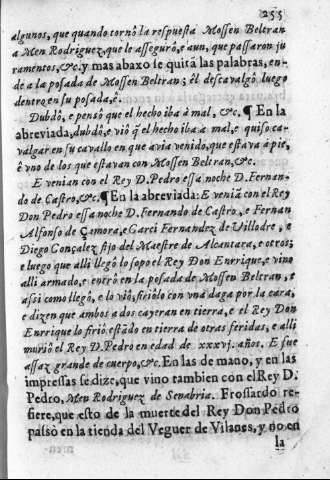 255
algunos, que quando tornò la respuesta Mossen Beltran
a Men Rodriguez, que le assegurò, e aun, que passaron ju
ramentos, &c. y mas abaxo se quitã las palabras, en-
de a la posada de Mossen Beltran; èl descavalgò luego
dentro en su posada, ê.
Dubdò, e pensò que el hecho iba á mal, &c. ¶ En la
abreviada, dubdò, e viò q̃ el hecho iba a mal, e quiso ca-
valgar en su cavallo en que avia venido, que estava á pie,
ê vno de los que estavan con Mossen Beltran, &c.
E venian con el Rey D. Pedro essa noche D. Fernan-
do de Castro, &c. ¶ En la abreviada: E veniã con el Rey
Don Pedro essa noche D. Fernando de Castro, e Fernan
Alfonso de Çamora, e Garci Fernandez de Villodre, e
Diego Gonçalez fijo del Maestre de Alcantara, e otros;
e luego que alli llegò lo sopo el Rey Don Enrrique, e vino
alli armado, e entrò en la posada de Mossen Beltran, e
assi como llegò, e lo viò, firiólo con vna daga por la cara,
e dizen que ambos a dos cayeran en tierra, e el Rey Don
Enrrique lo firiò estãdo en tierra de otras feridas, e alli
muriò el Rey D. Pedro en edad de xxxvj. años. E fue
assaz grande de cuerpo, &c. En las de mano, y en las
impressas se dize, que vino tambien con el Rey D.
Pedro, Men Rodriguez de Senabria. Frossardo re-
fiere, que esto de la muerte del Rey Don Pedro
passò en la tienda del Veguer de Vilanes, y no en
la